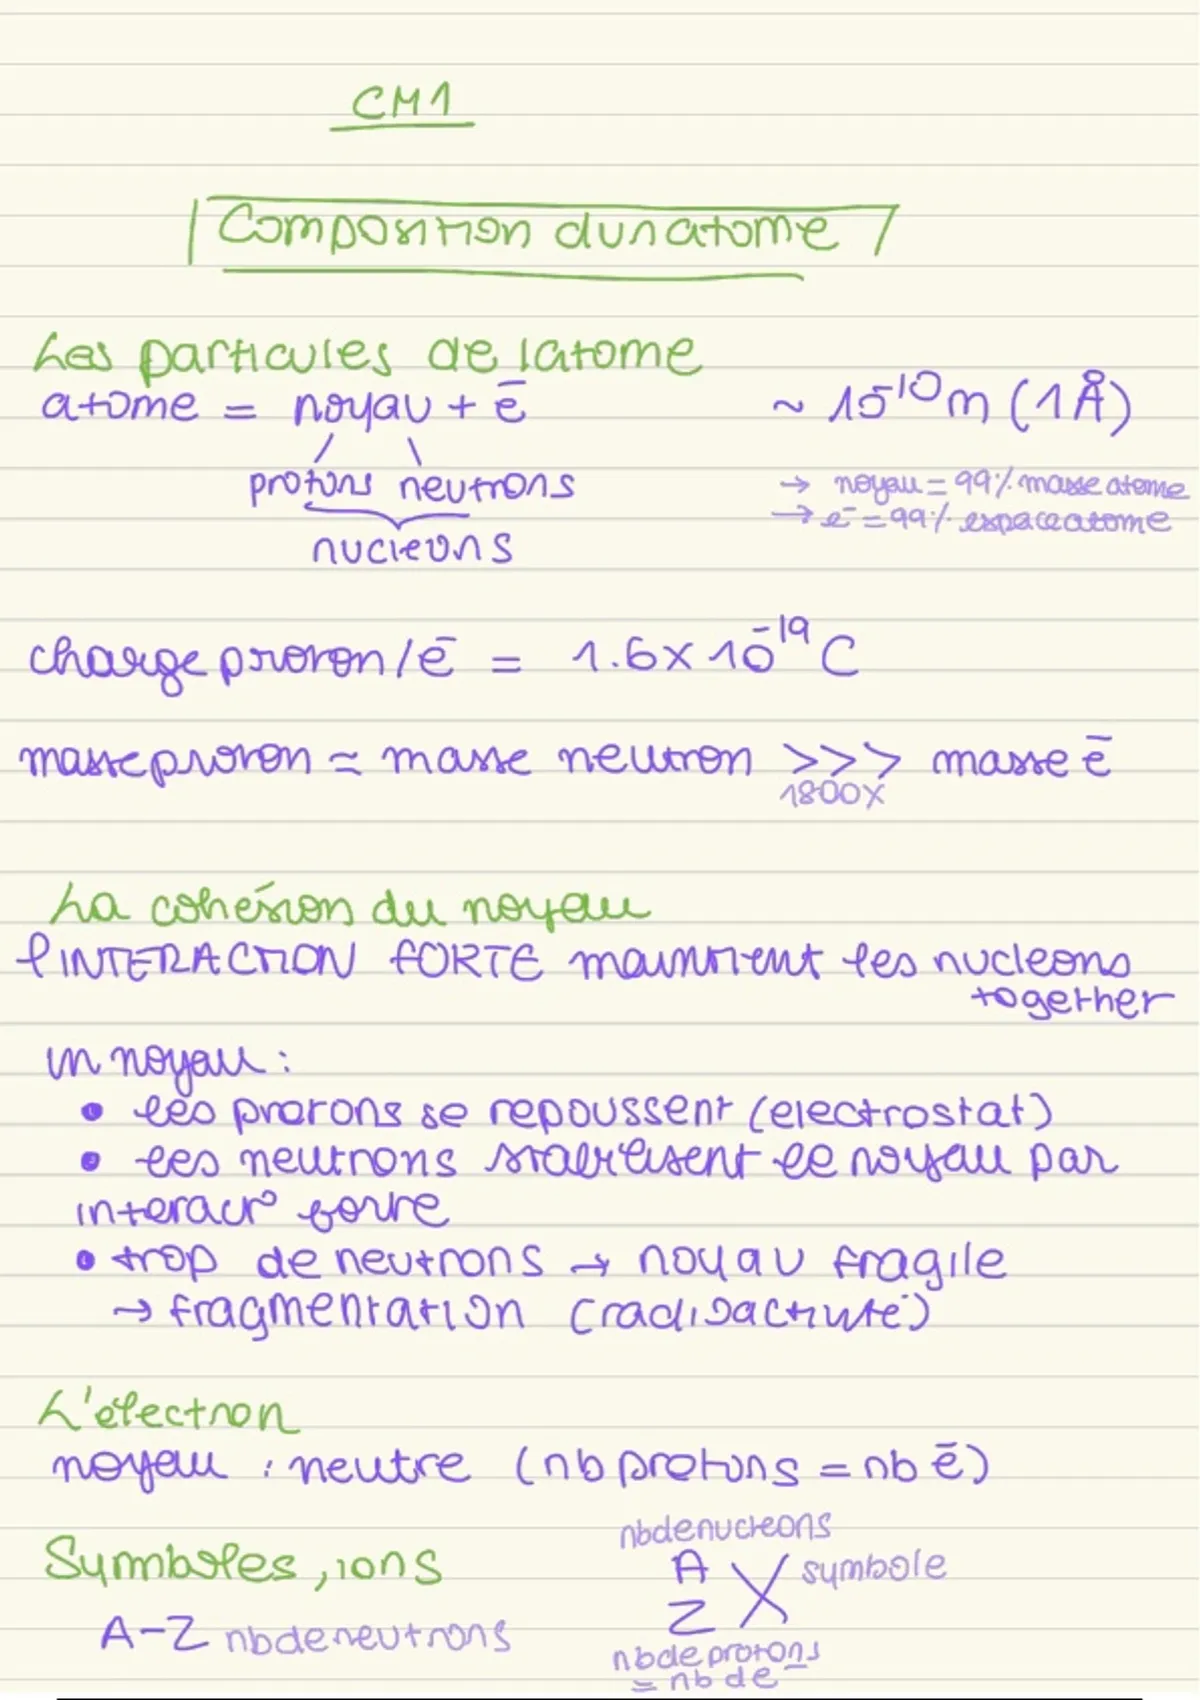 CM1
Composition dun atome
Les particules de latome
atome = noyau + e⁻ ~ 10⁻¹⁰ m (1 Å)
protons neutrons → noyau = 99% masse atome
→ e⁻ = 99% espace atome
nucleons
charge proton/e⁻ = 1.6 x 10⁻¹⁹ C
masse proton ≃ masse neutron >>> masse e⁻
1800x
La cohésion du noyau
l'INTERACTION FORTE maintient les nucleons
together
in noyau :
• les protons se repoussent (electrostat)
• les neutrons stabilisent le noyau par
interact° forte
• trop de neutrons → noyau fragile
→ fragmentation (radioactivité)
L'électron
noyau : neutre (nb protons = nb e⁻)
nb de nucleons
Symboles, ions A X symbole
Z
A-Z nb de neutrons
nb de protons
= nb de⁻